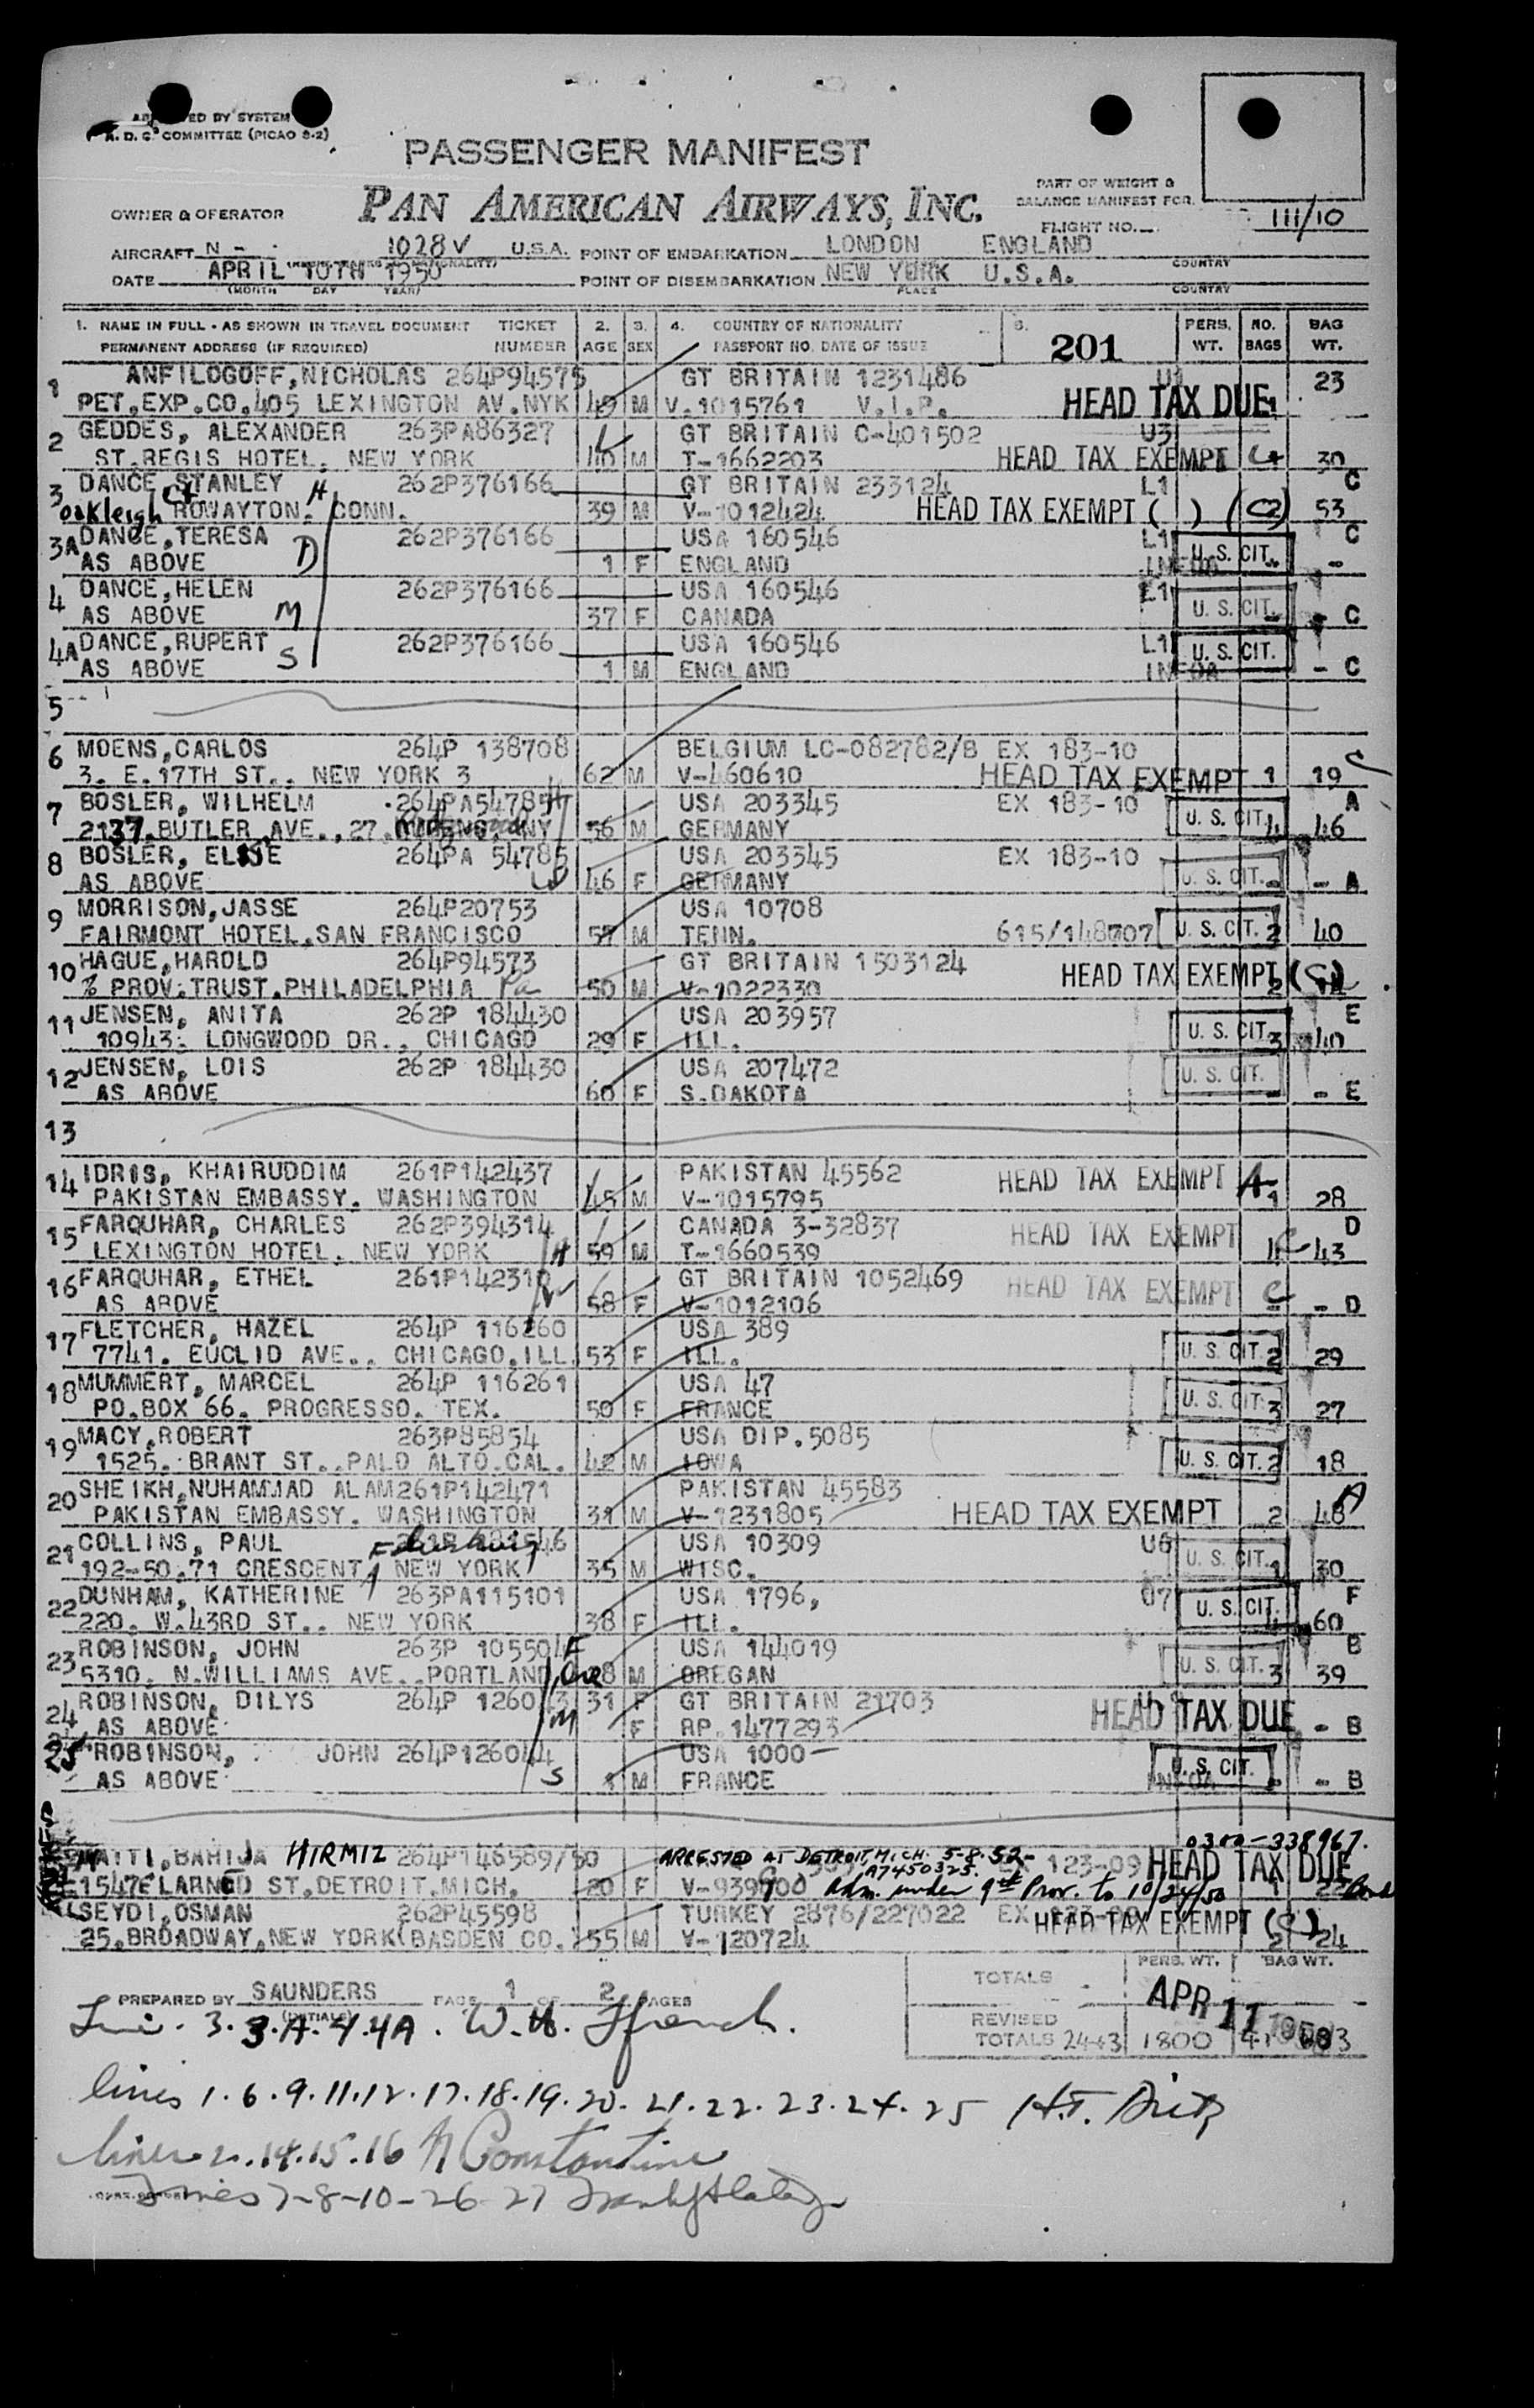 A. D. C. COMMITTEE (PICAO S-2)
PASSENGER MANIFEST
PAN AMERICAN AIRWAYS, INC.
PART OF WEIGHT &
BALANCE MANIFEST FOR
OWNER & OPERATOR
FLIGHT NO. 111/10
AIRCRAFT N - 1028V U.S.A. POINT OF EMBARKATION LONDON ENGLAND
COUNTRY
DATE APRIL 10TH 1950 POINT OF DISEMBARKATION NEW YORK U.S.A.
(MONTH DAY YEAR) PLACE COUNTRY
1. NAME IN FULL - AS SHOWN IN TRAVEL DOCUMENT TICKET 2. 3. 4. COUNTRY OF NATIONALITY 201 PERS. NO. BAG
PERMANENT ADDRESS (IF REQUIRED) NUMBER AGE SEX PASSPORT NO. DATE OF ISSUE WT. BAGS WT.
1 ANFILOGOFF, NICHOLAS 264P94575 GT BRITAIN 1231486 U1 23
PET.EXP.CO.405 LEXINGTON AV.NYK 49 M V.1015761 V.I.P. HEAD TAX DUE 1
2 GEDDES, ALEXANDER 263PA86327 GT BRITAIN C-401502 U3
ST.REGIS HOTEL. NEW YORK 40 M T-1662203 HEAD TAX EXEMPT 30
3 DANCE, STANLEY H 262P376166 GT BRITAIN 233124 L1 C
Oakleigh Ct ROWAYTON. CONN. 39 M V-1012424 HEAD TAX EXEMPT ( ) (C2) 53
3A DANCE, TERESA D 262P376166 USA 160546 L1 U. S. CIT. C
AS ABOVE 1 F ENGLAND -
4 DANCE, HELEN 262P376166 USA 160546 L1
AS ABOVE M 37 F CANADA U. S. CIT. - C
4A DANCE, RUPERT 262P376166 USA 160546 L1 U. S. CIT.
AS ABOVE S 1 M ENGLAND - C
5
6 MOENS, CARLOS 264P 138708 BELGIUM LC-082782/B EX 183-10
3. E.17TH ST.. NEW YORK 3 62 M V-460610 HEAD TAX EXEMPT 1 19 C
7 BOSLER, WILHELM 264PA54785 H USA 203345 EX 183-10 A
2137.BUTLER AVE., 27 56 M GERMANY U. S. CIT. 4 46
8 BOSLER, ELSIE 264PA 54785 USA 203345 EX 183-10
AS ABOVE W 46 F GERMANY U. S. CIT. - A
9 MORRISON, JASSE 264P20753 USA 10708
FAIRMONT HOTEL, SAN FRANCISCO M TENN. 615/148707 U. S. CIT. 2 40
10 HAGUE, HAROLD 264P94573 GT BRITAIN 1503124
% PROV.TRUST.PHILADELPHIA Pa 50 M V-1022330 HEAD TAX EXEMPT 2 (C)
11 JENSEN, ANITA 262P 184430 USA 203957 E
10943. LONGWOOD DR., CHICAGO 29 F ILL. U. S. CIT. 3 40
12 JENSEN, LOIS 262P 184430 USA 207472
AS ABOVE 60 F S.DAKOTA U. S. CIT. - - E
13
14 IDRIS, KHAIRUDDIM 261P142437 PAKISTAN 45562 HEAD TAX EXEMPT A
PAKISTAN EMBASSY. WASHINGTON 45 M V-1015795 1 28
15 FARQUHAR, CHARLES 262P394314 CANADA 3-32837 HEAD TAX EXEMPT D
LEXINGTON HOTEL. NEW YORK H 59 M T-1660539 43
16 FARQUHAR, ETHEL 261P142310 GT BRITAIN 1052469 HEAD TAX EXEMPT C
AS ABOVE W 58 F V-1012106 - - D
17 FLETCHER, HAZEL 264P 116260 USA 389
7741. EUCLID AVE.. CHICAGO.ILL. 53 F ILL. U. S. CIT. 2 29
18 MUMMERT, MARCEL 264P 116261 USA 47
PO.BOX 66. PROGRESSO. TEX. 50 F FRANCE U. S. CIT. 3 27
19 MACY, ROBERT 263P85854 USA DIP.5085
1525. BRANT ST..PALO ALTO.CAL. 42 M IOWA U. S. CIT. 2 18
20 SHEIKH, NUHAMMAD ALAM 261P142471 PAKISTAN 45583 A
PAKISTAN EMBASSY. WASHINGTON 31 M V-1231805 HEAD TAX EXEMPT 2 48
21 COLLINS, PAUL Flushing USA 10309 U6
192-50.71 CRESCENT NEW YORK 35 M WISC. U. S. CIT. 1 30
22 DUNHAM, KATHERINE 263PA115101 USA 1796, U7 F
220. W.43RD ST.. NEW YORK 38 F ILL. U. S. CIT. 60
23 ROBINSON, JOHN 263P 105504 F USA 144019 B
5310. N.WILLIAMS AVE..PORTLAND, Ore 8 M OREGAN U. S. CIT. 3 39
24 ROBINSON, DILYS 264P 126043 31 F GT BRITAIN 21703
AS ABOVE M F RP.1477293 HEAD TAX DUE - B
25 ROBINSON, JOHN 264P126044 USA 1000
AS ABOVE S 1 M FRANCE U. S. CIT. - - B
0300-338967.
MATTI, BAHIJA HIRMIZ 264P146589/50 ARRESTED AT DETROIT, MICH. 5-8-52- EX 123-09 HEAD TAX DUE
A7450325.
1547E LARNED ST.DETROIT.MICH. 20 F V-939700 Adm. under 9th Prov. to 10/24/50 1 Bond
SEYDI, OSMAN 262P45598 TURKEY 2876/227022 EX HEAD TAX EXEMPT (C)
25.BROADWAY.NEW YORK(BASDEN CO.) 55 M V-120724 2 24
TOTALS PERS. WT. BAG WT.
PREPARED BY SAUNDERS PAGE 1 OF 2 PAGES
(INITIALS)
APR 11 1950
REVISED
TOTALS 24+3 1800
3. 3.A. 4. 4A. W. H. Ffrench.
lines 1. 6. 9. 11. 12. 17. 18. 19. 20. 21. 22. 23. 24. 25 H.T. Dietz
lines 2. 14. 15. 16 Constantine
Lines 7-8-10-26-27